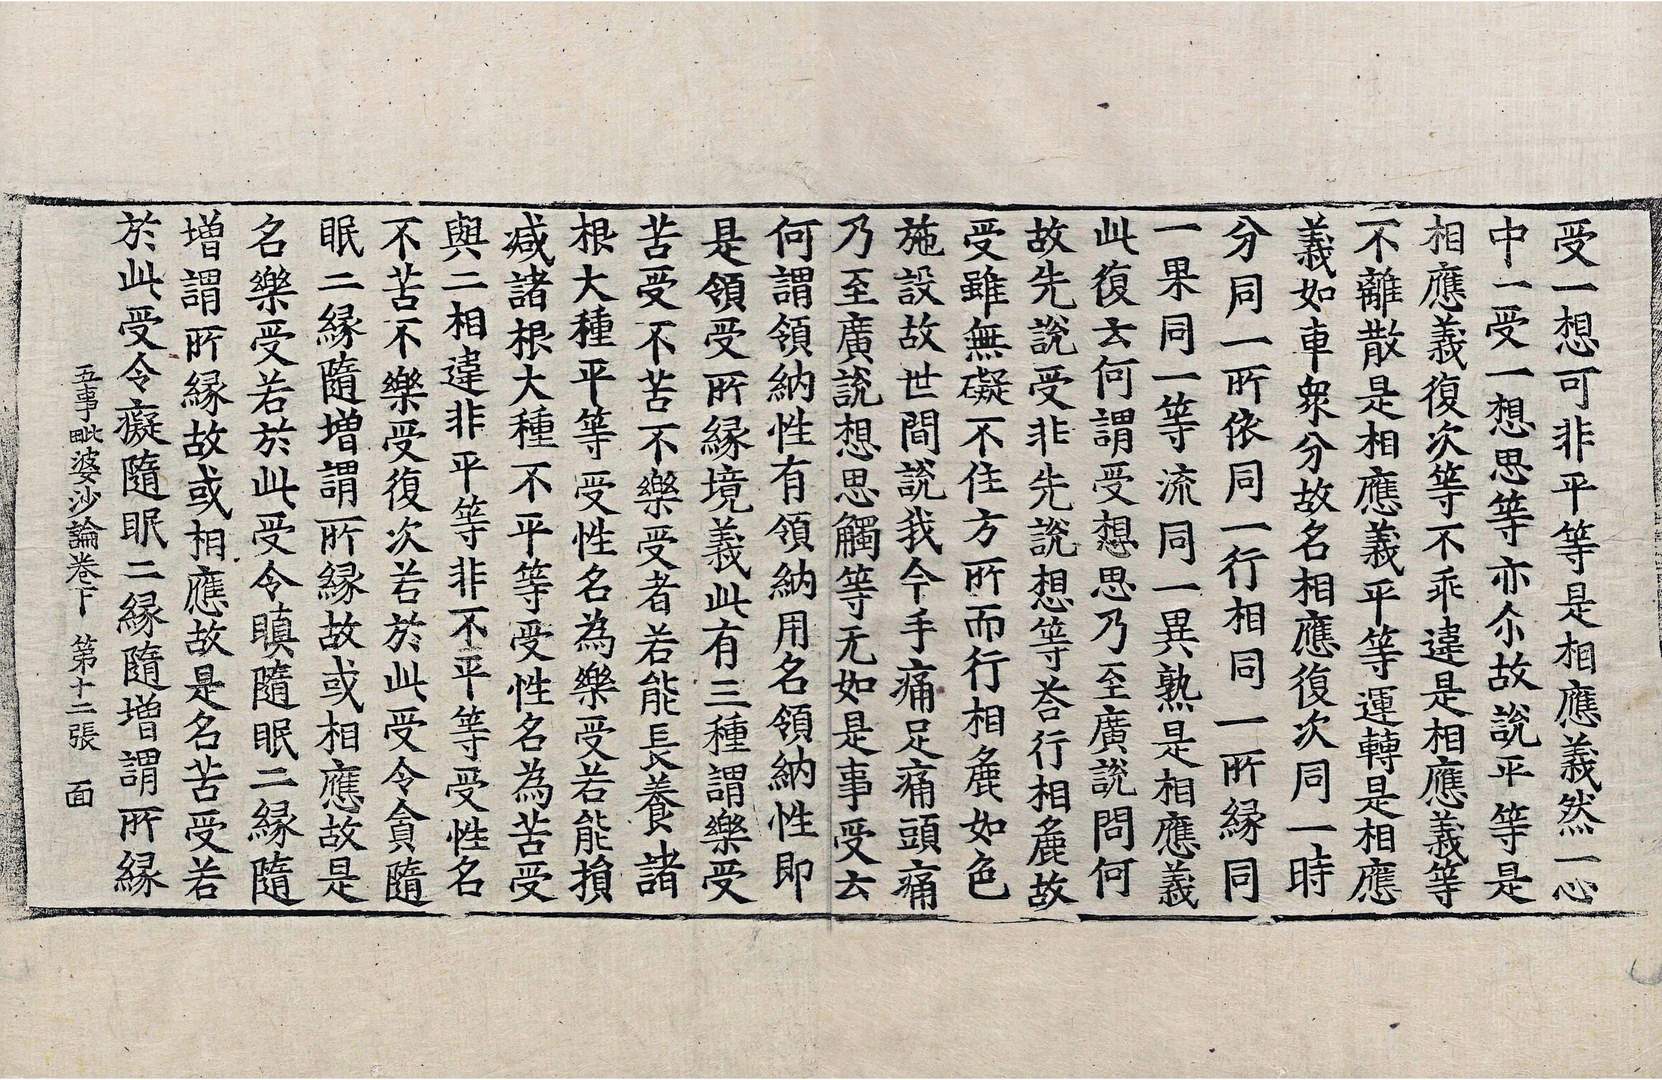 受一想可非平等是相應義然一心
中一受一想思等亦尒故說平等是
相應義復次等不乖違是相應義等
不離散是相應義平等運轉是相應
義如車衆分故名相應復次同一時
分同一所依同一行相同一所緣同
一果同一等流同一異熟是相應義
此復云何謂受想思乃至廣說問何
故先說受非先說想等荅行相麁故
受雖無礙不住方所而行相麁如色
施設故世間說我今手痛足痛頭痛
乃至廣說想思觸等无如是事受云
何謂領納性有領納用名領納性即
是領受所緣境義此有三種謂樂受
苦受不苦不樂受者若能長養諸
根大種平等受性名為樂受若能損
减諸根大種不平等受性名為苦受
與二相違非平等非不平等受性名
不苦不樂受復次若於此受令貪隨
眠二緣隨增謂所緣故或相應故是
名樂受若於此受令瞋隨眠二緣隨
增謂所緣故或相應故是名苦受若
於此受令癡隨眠二緣隨增謂所緣
五事毗婆沙論卷下 第十二張 面